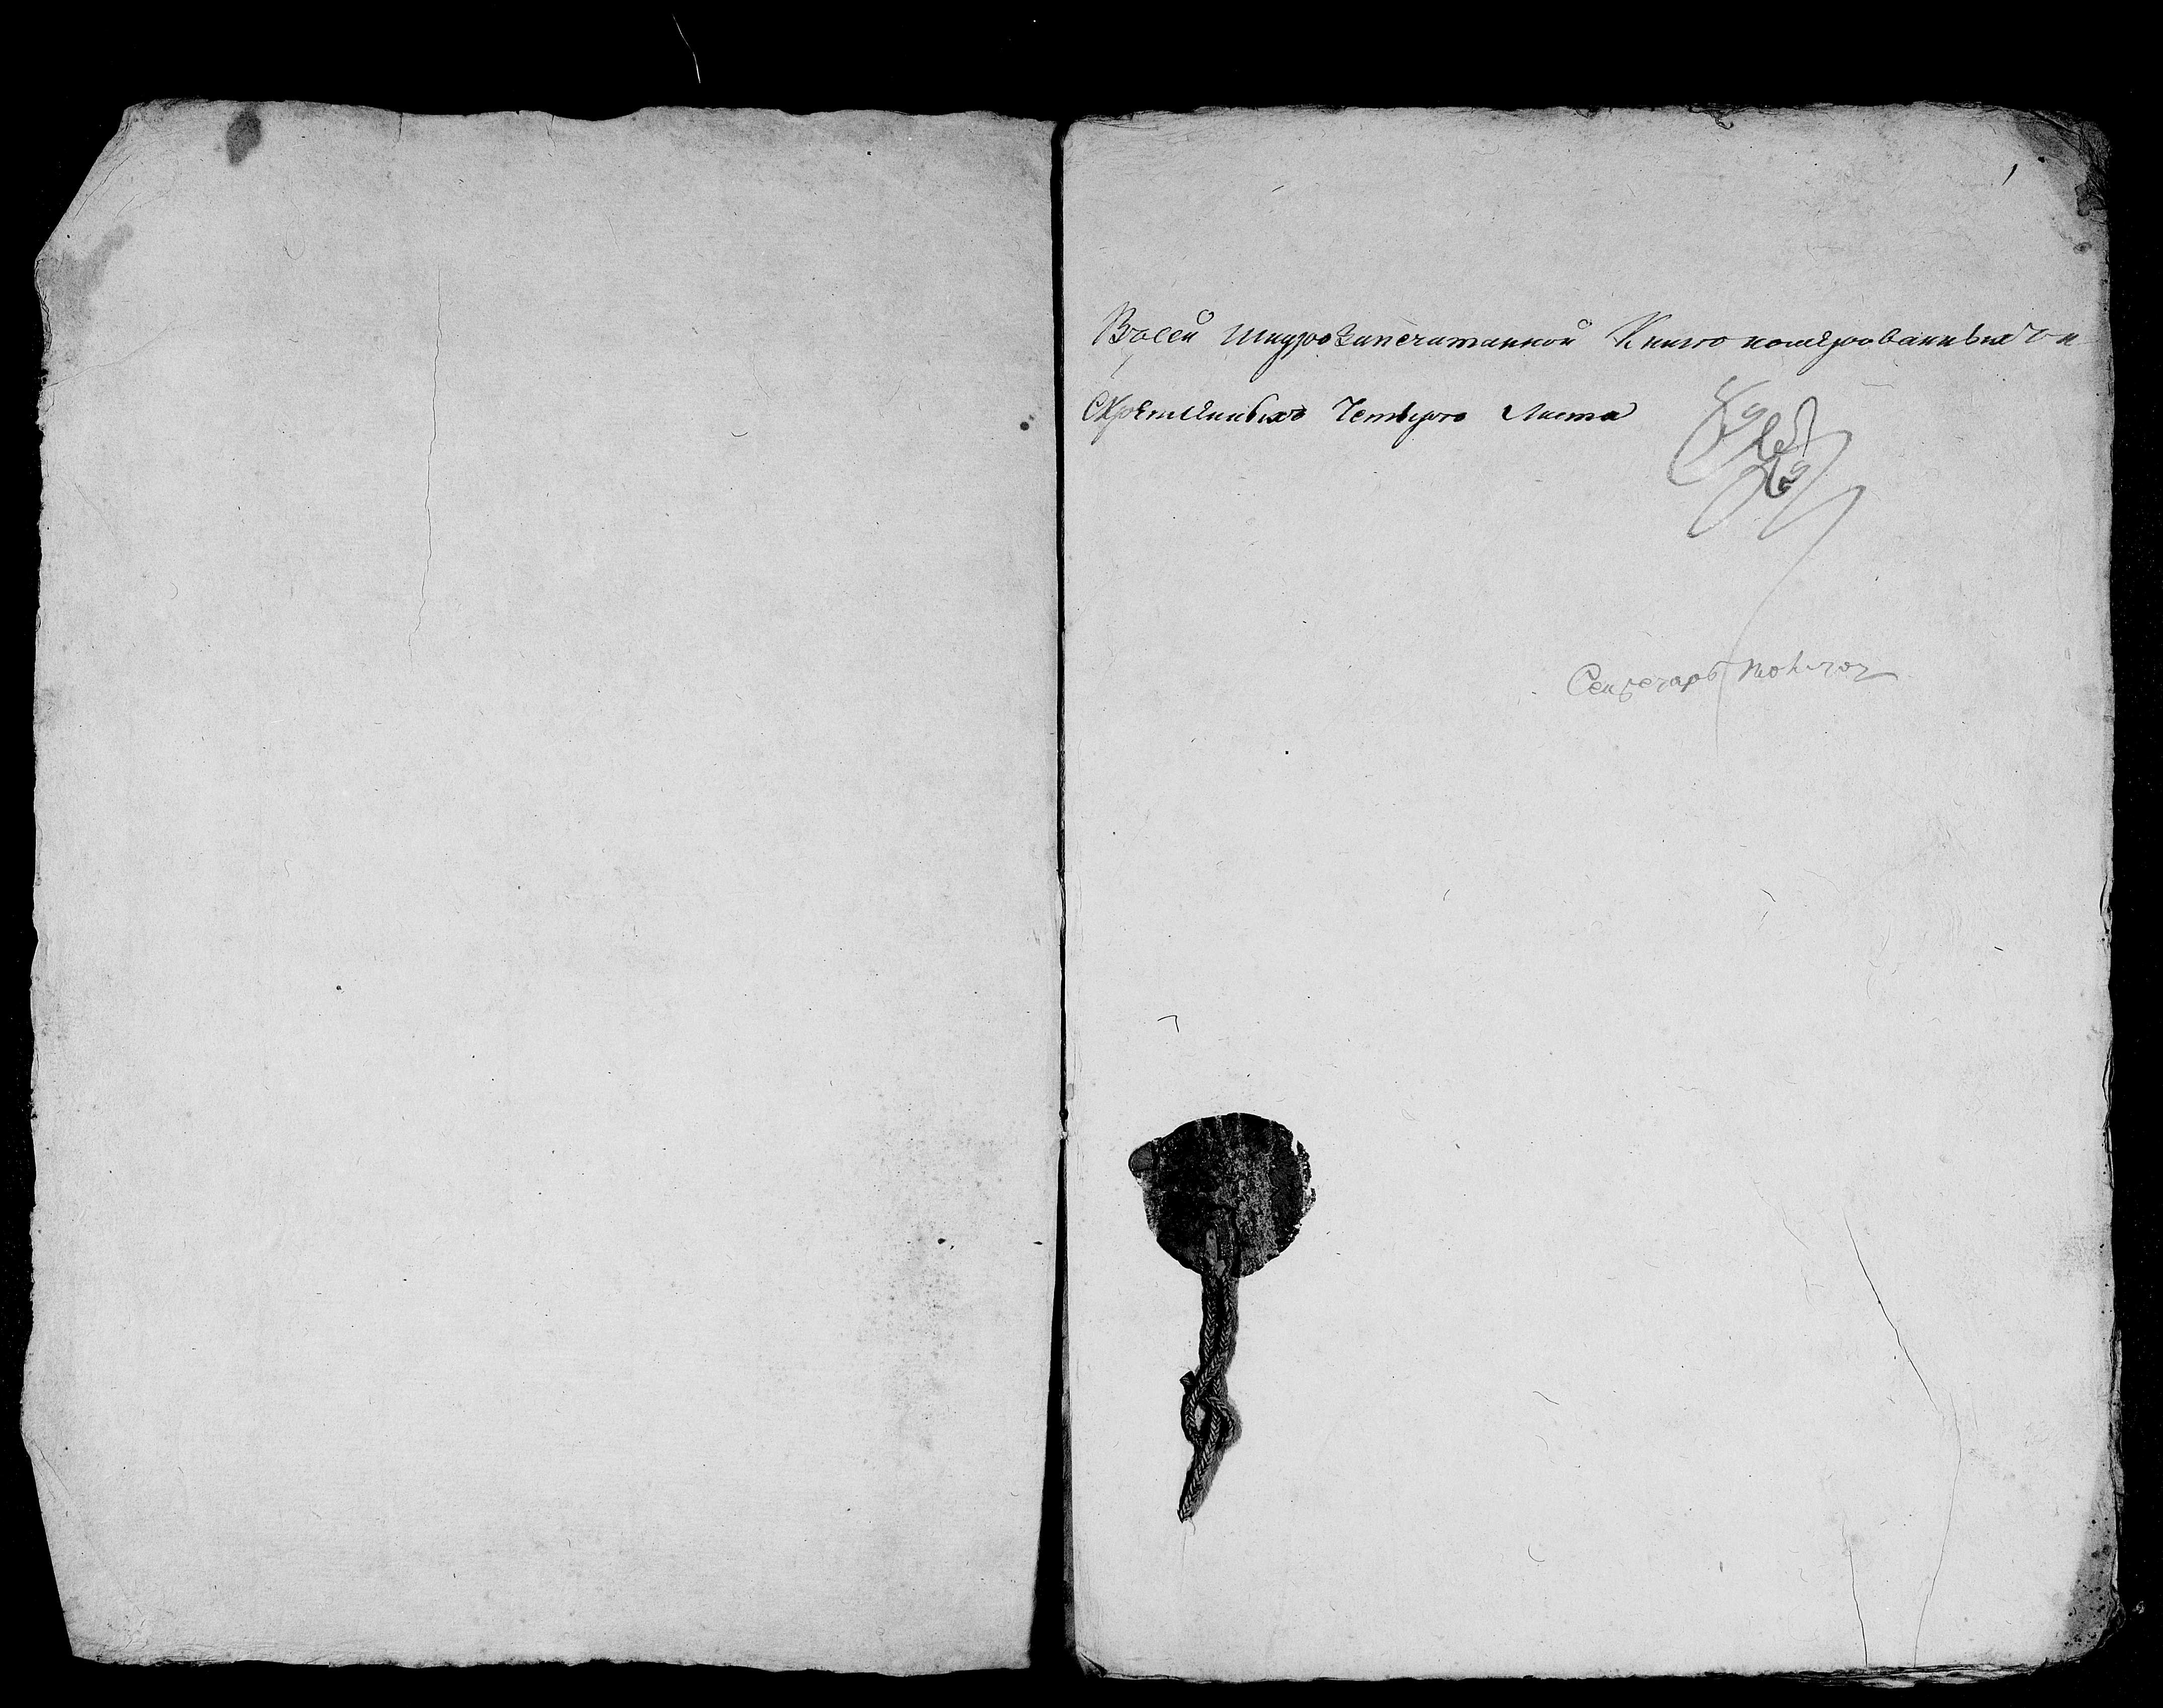 Въсей шнурозапечатанной Книге номерованныхъ и
Скрепленныхъ Четыре Листа
Секретарь